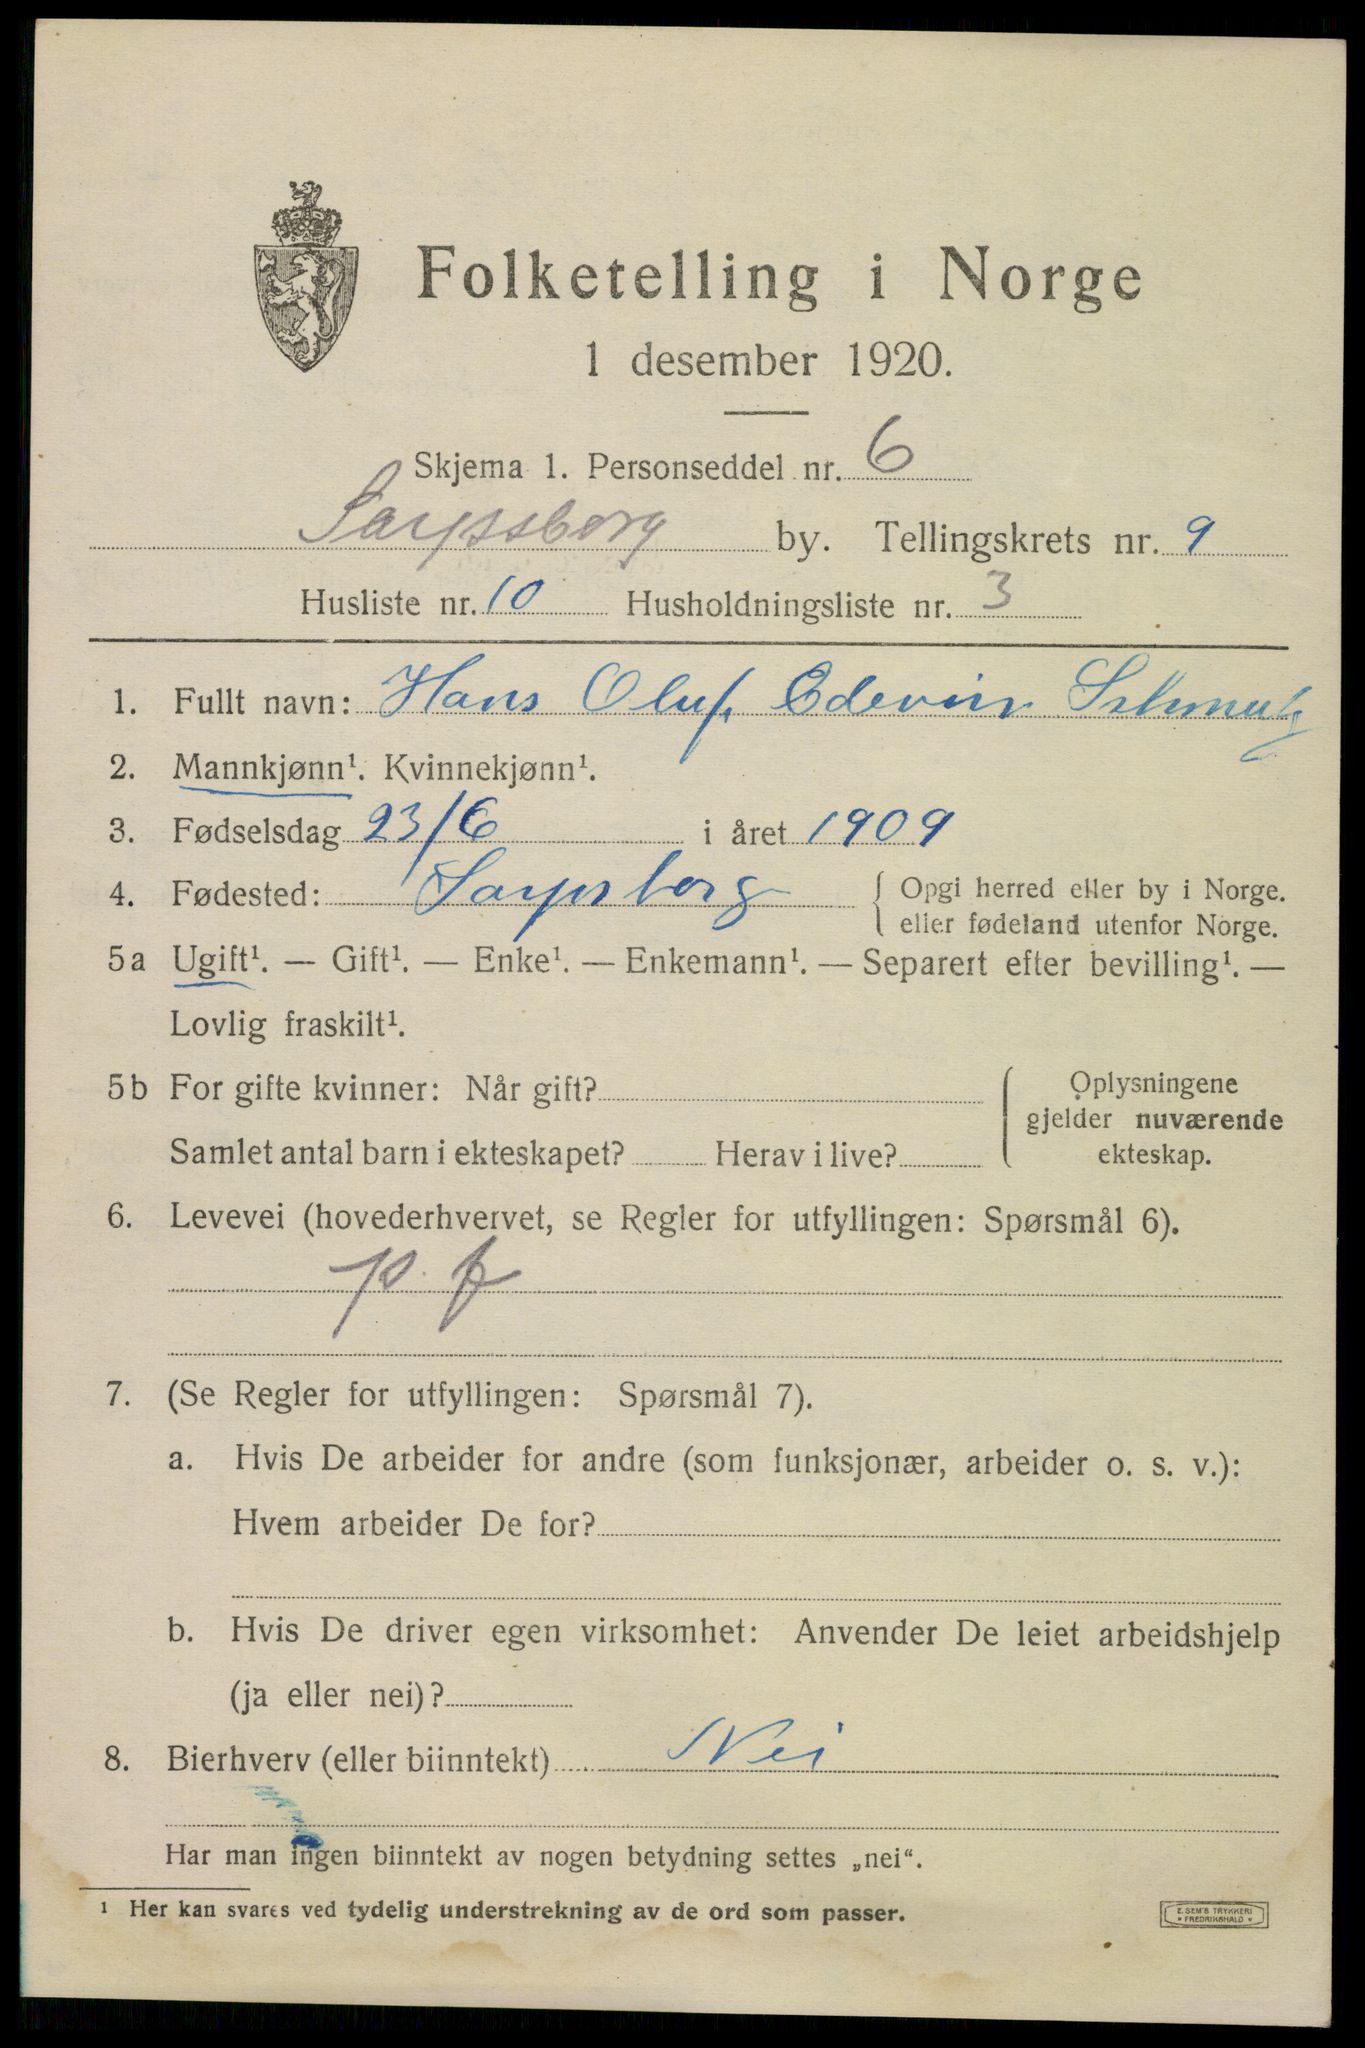 Folketelling i Norge
1 desember 1920.
Skjema 1. Personseddel nr. 6
Sarpsborg by. Tellingskrets nr. 9
Husliste nr. 10 Husholdningsliste nr. 3
1. Fullt navn: Hans Oluf Edevin
2. Mannkjønn¹. Kvinnekjønn¹.
3. Fødselsdag 23/6 i året 1909
4. Fødested: Sarpsborg { Opgi herred eller by i Norge.
eller fødeland utenfor Norge.
5a Ugift¹. — Gift¹. — Enke¹. — Enkemann¹. — Separert efter bevilling¹. —
Lovlig fraskilt¹.
5b For gifte kvinner: Når gift?
Samlet antal barn i ekteskapet? Herav i live?
Oplysningene
gjelder nuværende
ekteskap.
6. Levevei (hovederhvervet, se Regler for utfyllingen: Spørsmål 6).
p. f
7. (Se Regler for utfyllingen: Spørsmål 7).
a. Hvis De arbeider for andre (som funksjonær, arbeider o. s. v.):
Hvem arbeider De for?
b. Hvis De driver egen virksomhet: Anvender De leiet arbeidshjelp
(ja eller nei)?
8. Bierhverv (eller biinntekt) Nei
Har man ingen biinntekt av nogen betydning settes „nei“.
¹ Her kan svares ved tydelig understrekning av de ord som passer.
E. SEM'S TRYKKERI
* FREDRIKSHALD *